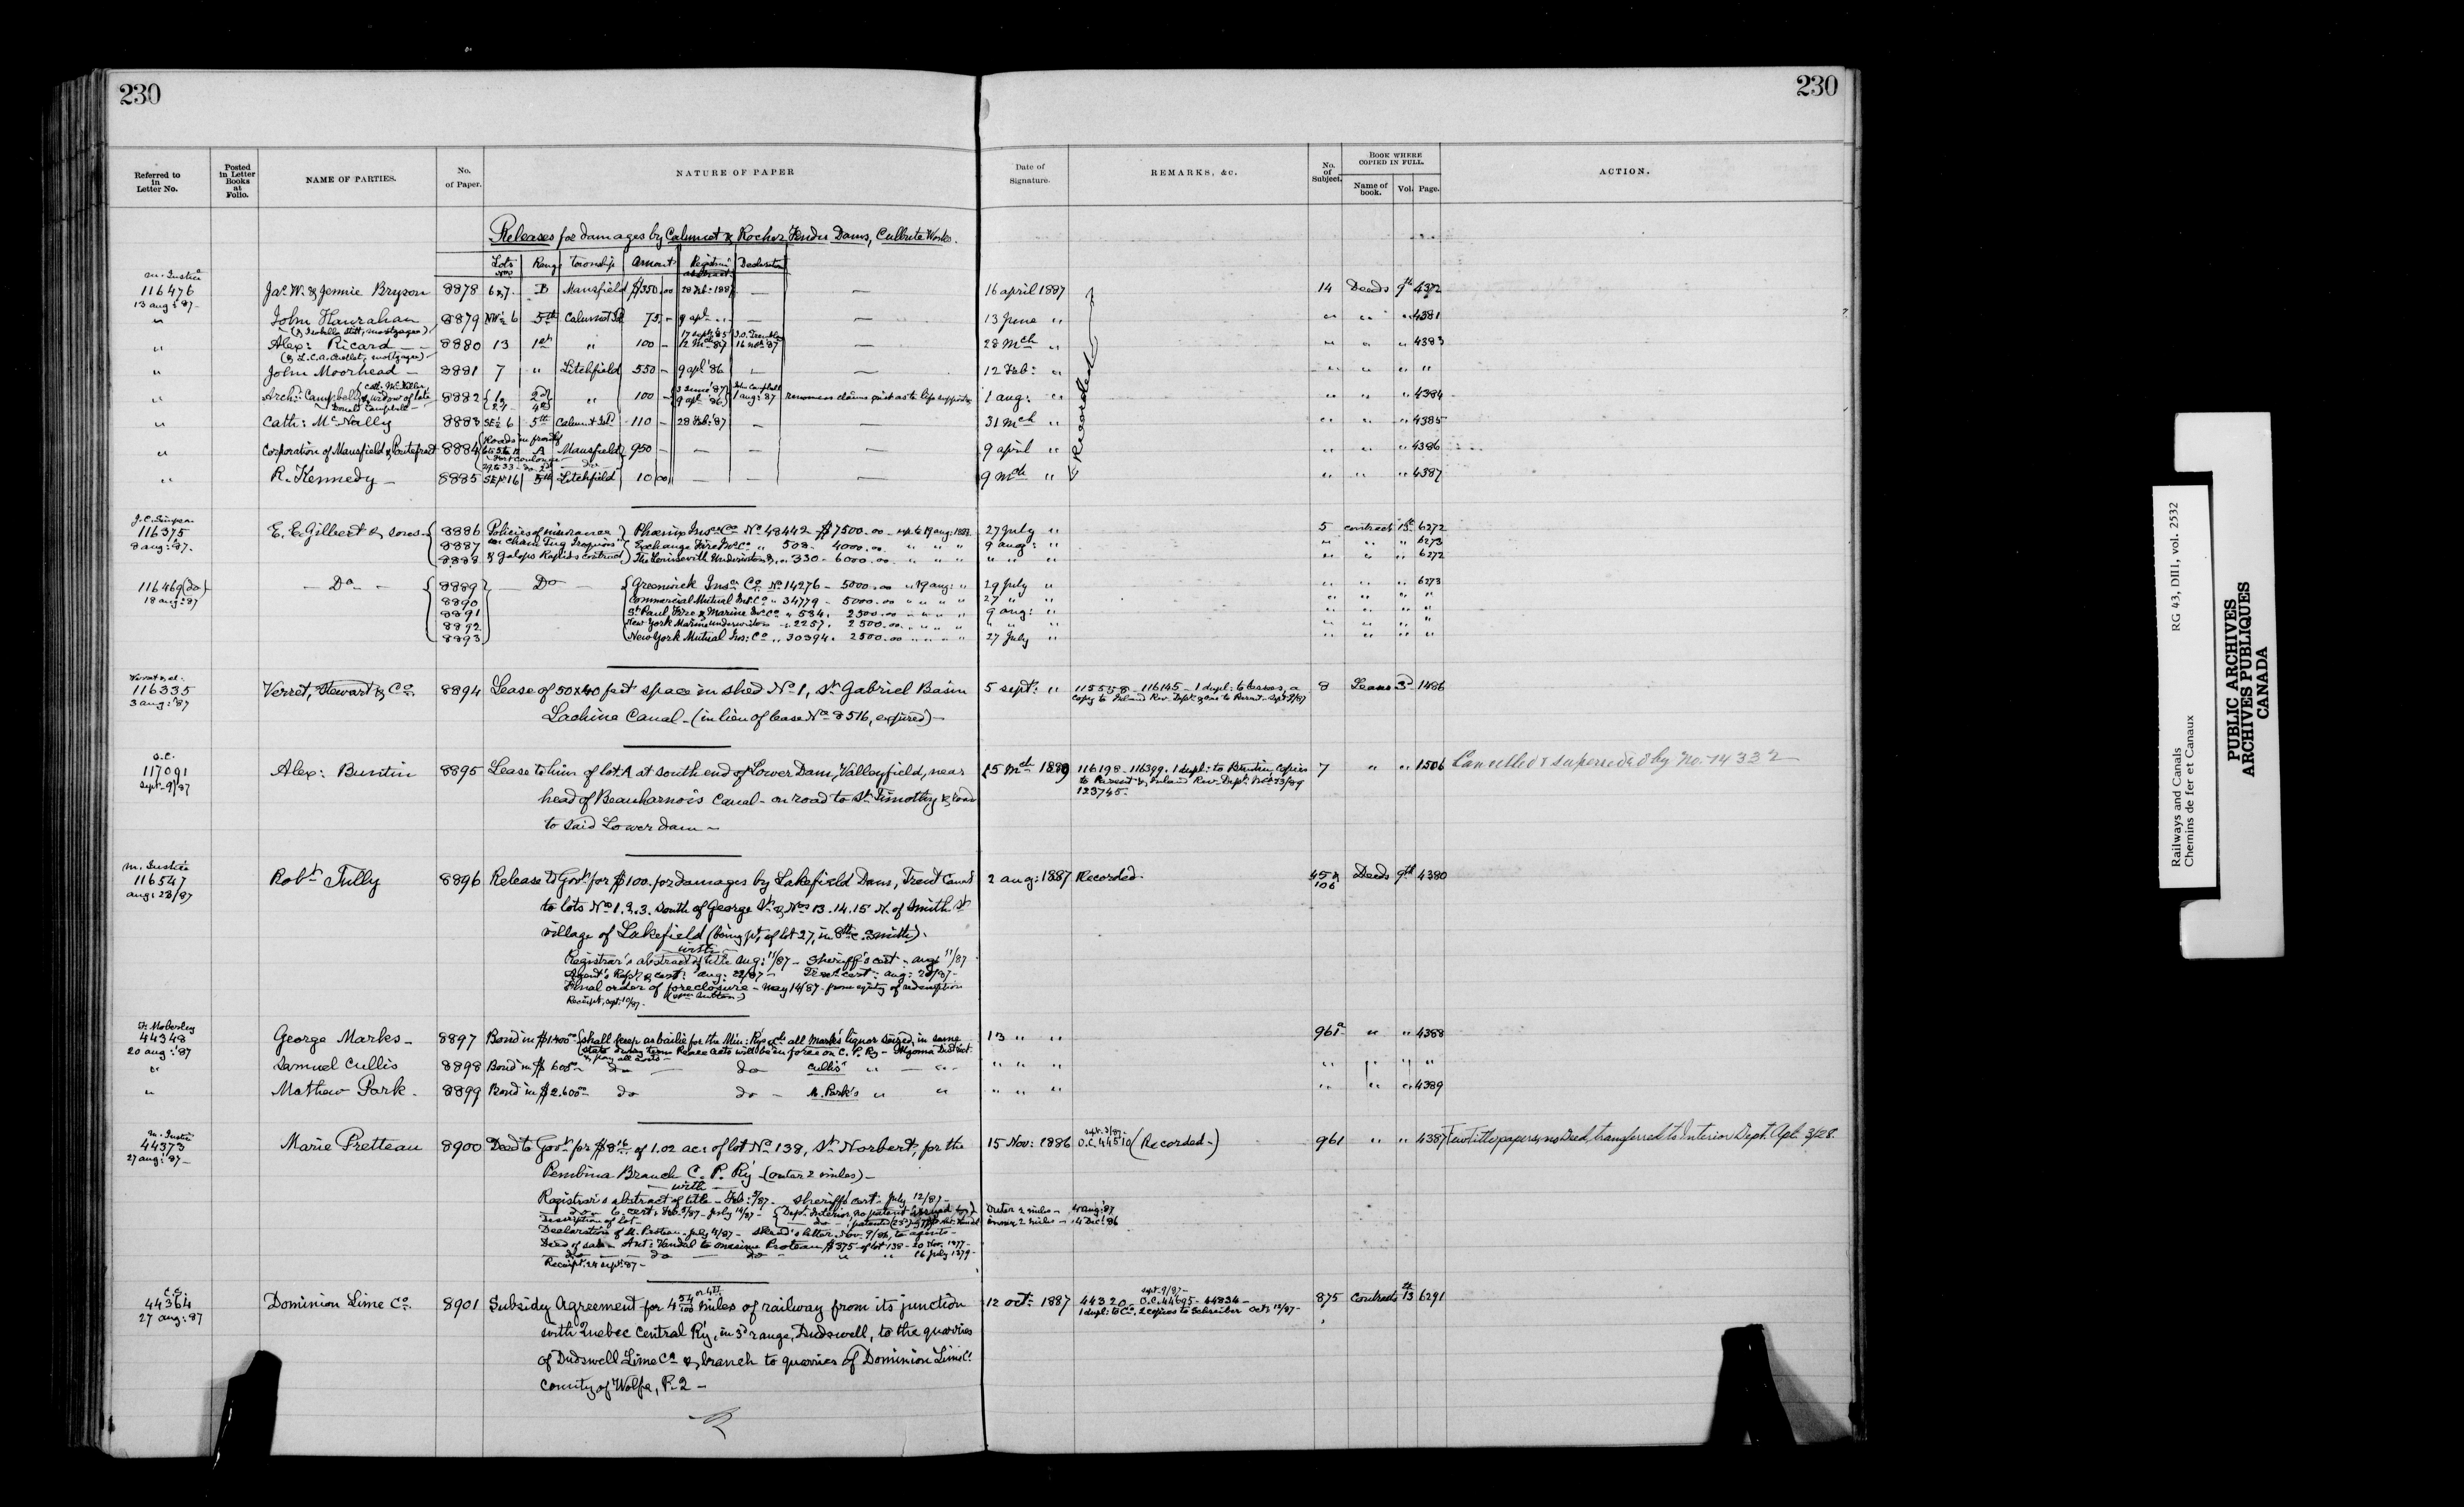 230
230
Referred to in Letter No.
Posted in Letter Books at Folio.
NAME OF PARTIES.
No. of Paper.
NATURE OF PAPER
Date of Signature.
REMARKS, &c.
No. of Subject.
BOOK WHERE COPIED IN FULL.
Name of book.
Vol.
Page.
ACTION.
Releases for damages by Calumet & Rocher Fendu Dams, Culbute Works.
Lots Nos Range Township Amount Registrar's abstract Declaration
M. Justice
116476 Jas W. & Jennie Bryson 8878 6 & 7 B Mansfield $350.00 28 Feb: 1887 — — 16 april 1887 14 Deeds 9th 4372
13 aug: '87
" John Hanrahan 8879 NW½ 6 5th Calumet Isd 75 - 9 apl " — — 13 June " " " " 4381
" Alex: Ricard 8880 13 1st " 100 - 17 sept '85 12 Mch '87 16 nov: '87 — 28 Mch " " " " 4383
(& L.C.A. Ouellet, mortgagee)
" John Moorhead 8881 7 " Litchfield 550 - 9 apl '86 — — 12 Feb: " " " " "
" Archd Campbell & widow of late Donald Campbell 8882 2d 4th " 100 - 9 apl '86 John Campbell 1 aug: '87 1 aug: " " " " 4384
" Cath: McNally 8883 SE½ 6 5th Calumet Isd 110 - 28 Feb: '87 — — 31 Mch " " " " 4385
" Corporation of Mansfield & Pontefract 8884 Roads in front of A Mansfield 950 - — — — 9 april " " " " 4386
" R. Kennedy 8885 SE½ 16 5th Litchfield 10 00 — — — 9 Mch " " " " 4387
Recorded
J.C. Simpson
116375 E. E. Gilbert & sons 8886 Policies of insurance Phoenix Insce Co No 48442 $7500.00 up to 19 aug: 1888 27 July " 5 contract 13th 6272
8 aug: '87. 8887 Exchange Fire Ins Co " 508 - 4000.00 " " " 9 aug: " " " " 6273
8888 & Galops Rapids contract The Louisville Underwriters " 330 - 6000.00 " " " " " " " " " 6272
116469 (do) — Do — 8889 — Do — Greenwich Insce Co No 14276 - 5000.00 " 19 aug: " 29 July " " " " 6273
18 aug: '87 8890 Commercial Mutual Ins Co " 34779 - 5000.00 " " " 27 " " " " " "
8891 St Paul Fire & Marine Ins Co " 534. 2500.00 " " " 9 aug: " " " " "
8892 New York Marine underwriters " 2257. 2500.00 " " " " " " " " " "
8893 New York Mutual Ins: Co " 30394. 2500.00 " " " 27 July " " " " "
Verret & al.
116335 Verret, Stewart & Co. 8894 Lease of 50x40 feet space in shed No 1, St Gabriel Basin 5 sept: " 115558 - 116145 - 1 dupl: to lessees, a 8 Leases 3d 1486
3 aug: '87 Lachine Canal - (in lieu of lease No 8516, expired) — copy to Inland Rev. Dept.
O.C.
117091 Alex: Buntin 8895 Lease to him of lot A at south end of Lower Dam, Valleyfield, near 15 Mch 1889 116198 - 116399. 1 dupl: to Buntin. Copies 7 " " 1506 Cancelled & superseded by No. 14332
Sept 9/87 head of Beauharnois Canal - on road to St Timothy & road to & Inland Rev. Dept.
to said Lower dam — 123745.
M. Justice
116547 Robt Tully 8896 Release to Govt for $100. for damages by Lakefield Dam, Trent Canal 2 aug: 1887 Recorded. 45 & 106 Deeds 9th 4380
aug: 23/87 to lots Nos 1. 2. 3. South of George St & Nos 13. 14. 15 N. of Smith St
village of Lakefield (being pt of lot 27, in 8th c. Smith).
with
Registrar's abstract of title aug: 11/87 - Sheriff's cert. - aug: 11/87
Agent's Rept & cert: aug: 22/87 - cert: aug: 23/87 -
Final order of foreclosure - May 14/87 - from equity of redemption
Receipt, sept: 10/87.
F. Moberley
44348 George Marks - 8897 Bond in $1400.00 (shall keep as bailee for the Min: Rys &c all Marks' liquor seized, in same 13 " " 961a " " 4388
20 aug: '87 state during term Peace acts will be in force on C. P. Ry - Algoma District & pay all costs -
" Samuel Cullis 8898 Bond in $600 do do Cullis' " " " " " " " "
" Mathew Park. 8899 Bond in $2.600 do do M. Park's " " " " " " " " 4389
M. Justice
44373 Marie Pretteau 8900 Deed to Govt for $8.16 of 1.02 ac: of lot No 138, St Norbert, for the 15 Nov: 1886 O.C. 44510 (Recorded -) 961 " " 4387 Few Title papers, no Deed, transferred to Interior Dept. Apl. 3/28.
27 aug: '87 - Pembina Branch C. P. Ry - (outer 2 miles) -
with
Registrar's abstract of title - Feb: 5/87 - Sheriff's cert - July 12/87 -
Description of lot - outer 2 miles - 4 aug: '87
inner 2 miles - 14 Dec: '86
Declaration of M. Proteau - July 4/87 - letter Nov. 9/86, to agents -
Deed of sale - Ant: Vandal to Onesime Proteau, $375 - of lot 138 - 20 Nov. 1877 -
do do do " " 16 July 1879 -
Receipt: 24 sept: 87 -
C.E.
44364 Dominion Lime Co. 8901 Subsidy Agreement for 4 54/100 miles of railway from its junction 12 oct: 1887 44320 O.C. 44695 - 44834 - 875 Contracts 13th 6291
27 aug: 87 with Quebec Central Ry, in 3d range, Dudswell, to the quarries 1 dupl: to Co, 2 copies to Schreiber Oct 12/87 -
of Dudswell Lime Co & branch to quarries of Dominion Lime Co.
County of Wolfe, P.Q -
Railways and Canals
Chemins de fer et Canaux
RG 43, DII1, vol. 2532
PUBLIC ARCHIVES
ARCHIVES PUBLIQUES
CANADA